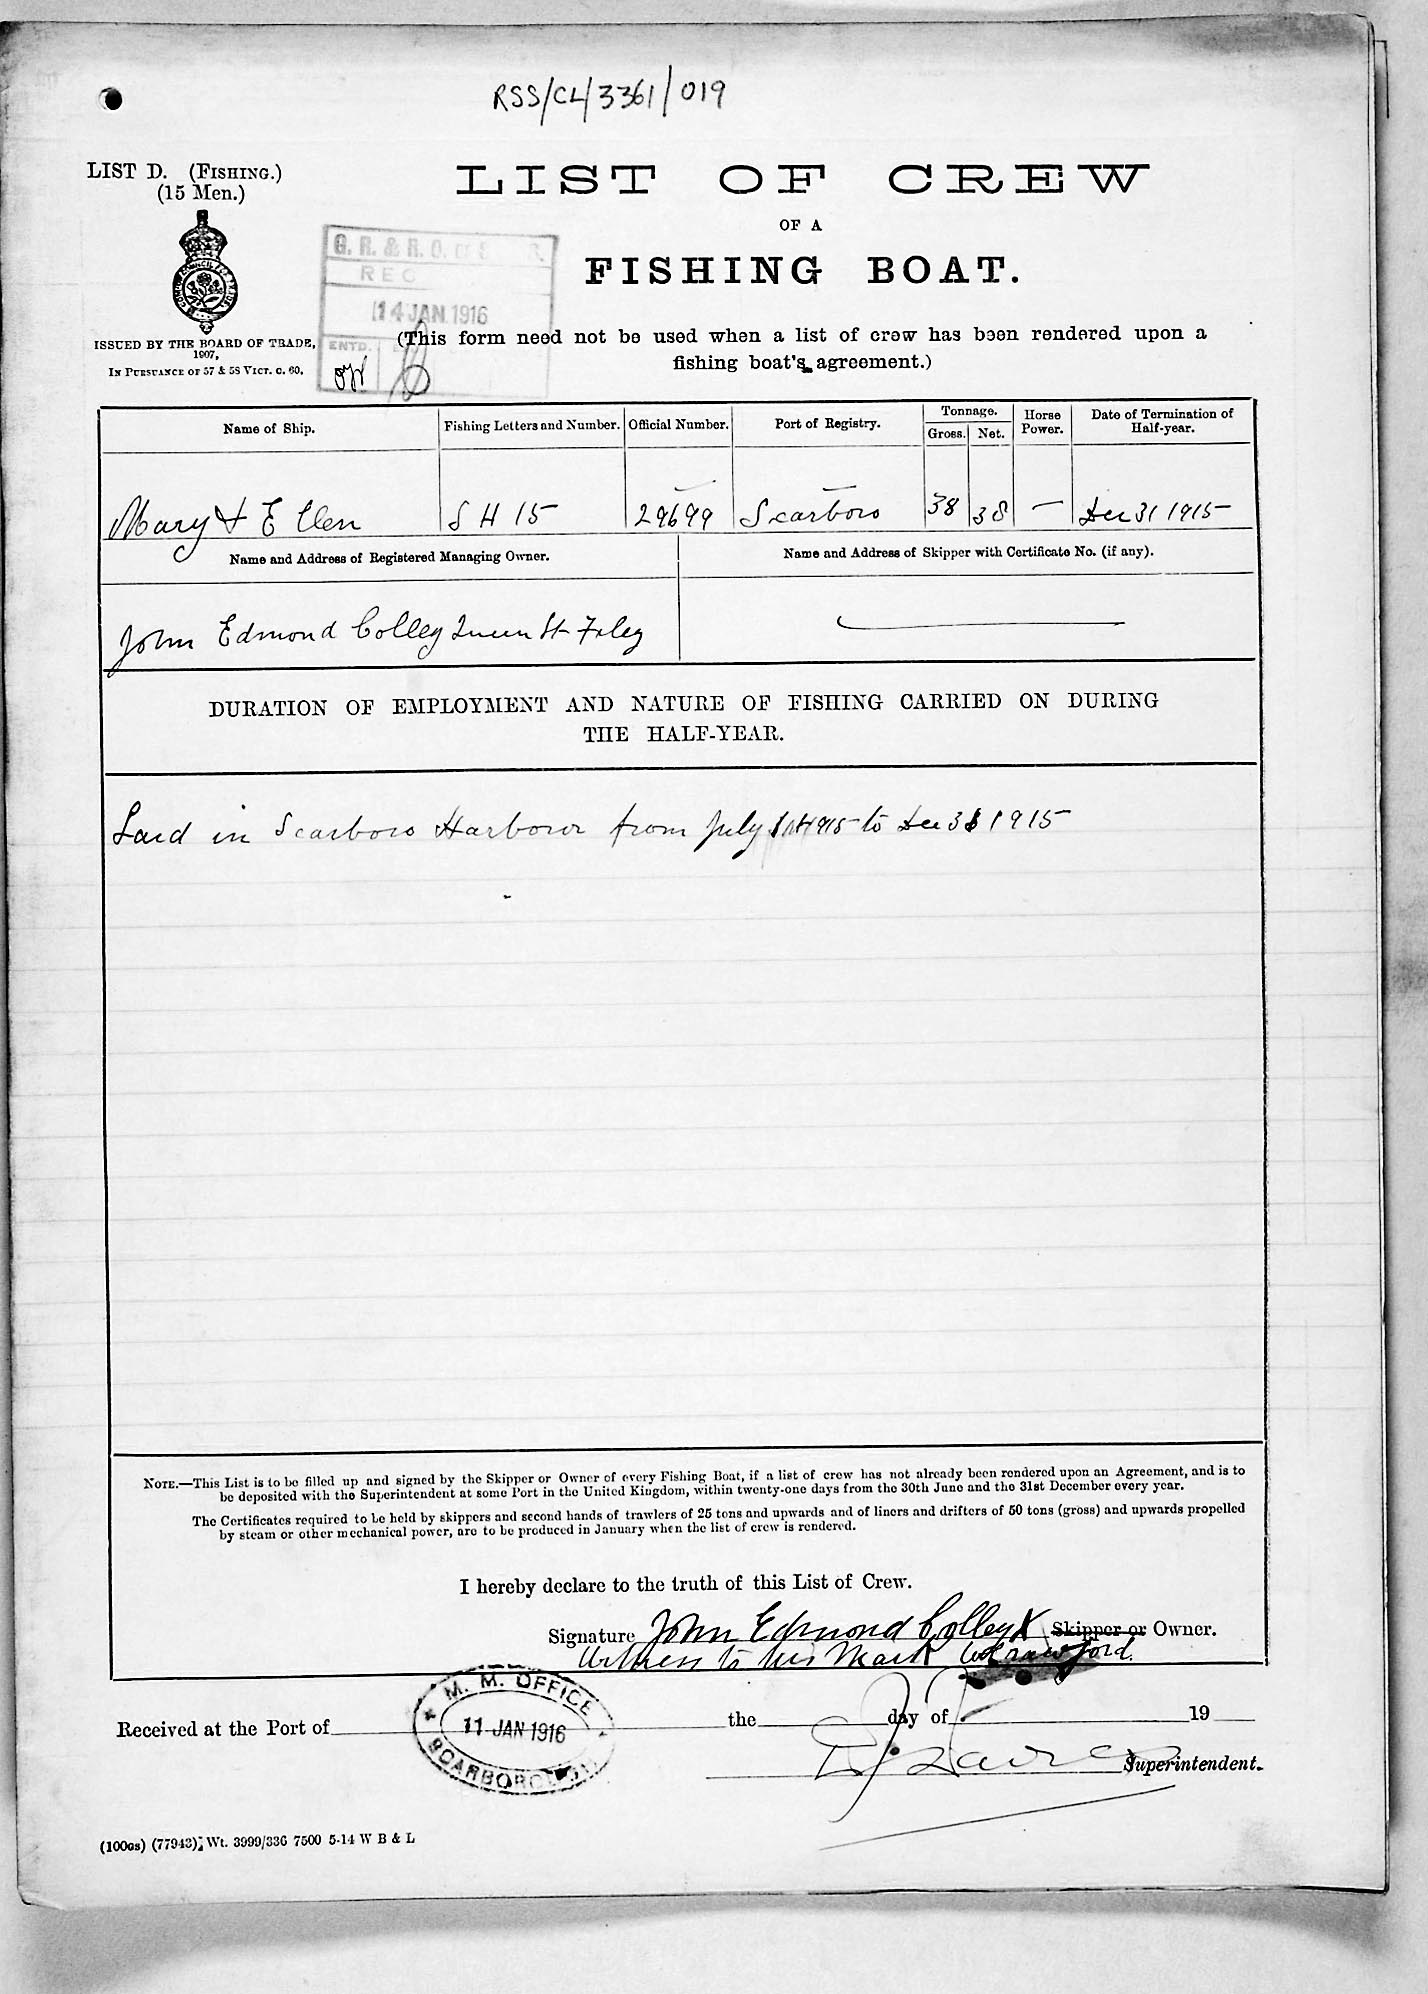 RSS/CL/3361/019
LIST D. (FISHING.)
(15 Men.)
LIST OF CREW
OF A
FISHING BOAT.
G. R. & R. O. of S
REC
14 JAN. 1916
ENTD.
ISSUED BY THE BOARD OF TRADE,
1907,
IN PURSUANCE OF 57 & 58 VICT. C. 60.
(This form need not be used when a list of crew has been rendered upon a
fishing boat's agreement.)
Name of Ship. Fishing Letters and Number. Official Number. Port of Registry. Tonnage. Gross. Net. Horse Power. Date of Termination of Half-year.
Mary & Ellen SH 15 29699 Scarboro 38 38 — Dec 31 1915
Name and Address of Registered Managing Owner. Name and Address of Skipper with Certificate No. (if any).
John Edmond Colley Queen St Filey
DURATION OF EMPLOYMENT AND NATURE OF FISHING CARRIED ON DURING
THE HALF-YEAR.
Laid in Scarboro Harbour from July 1st 1915 to Dec 31 1915
NOTE.—This List is to be filled up and signed by the Skipper or Owner of every Fishing Boat, if a list of crew has not already been rendered upon an Agreement, and is to
be deposited with the Superintendent at some Port in the United Kingdom, within twenty-one days from the 30th June and the 31st December every year.
The Certificates required to be held by skippers and second hands of trawlers of 25 tons and upwards and of liners and drifters of 50 tons (gross) and upwards propelled
by steam or other mechanical power, are to be produced in January when the list of crew is rendered.
I hereby declare to the truth of this List of Crew.
Signature John Edmond Colley X Skipper or Owner.
Witness to his Mark W Crawford
M. M. OFFICE
11 JAN 1916
SCARBOROUGH
Received at the Port of the day of 19
Superintendent.
(100GS) (77943) Wt. 3999/336 7500 5-14 W B & L